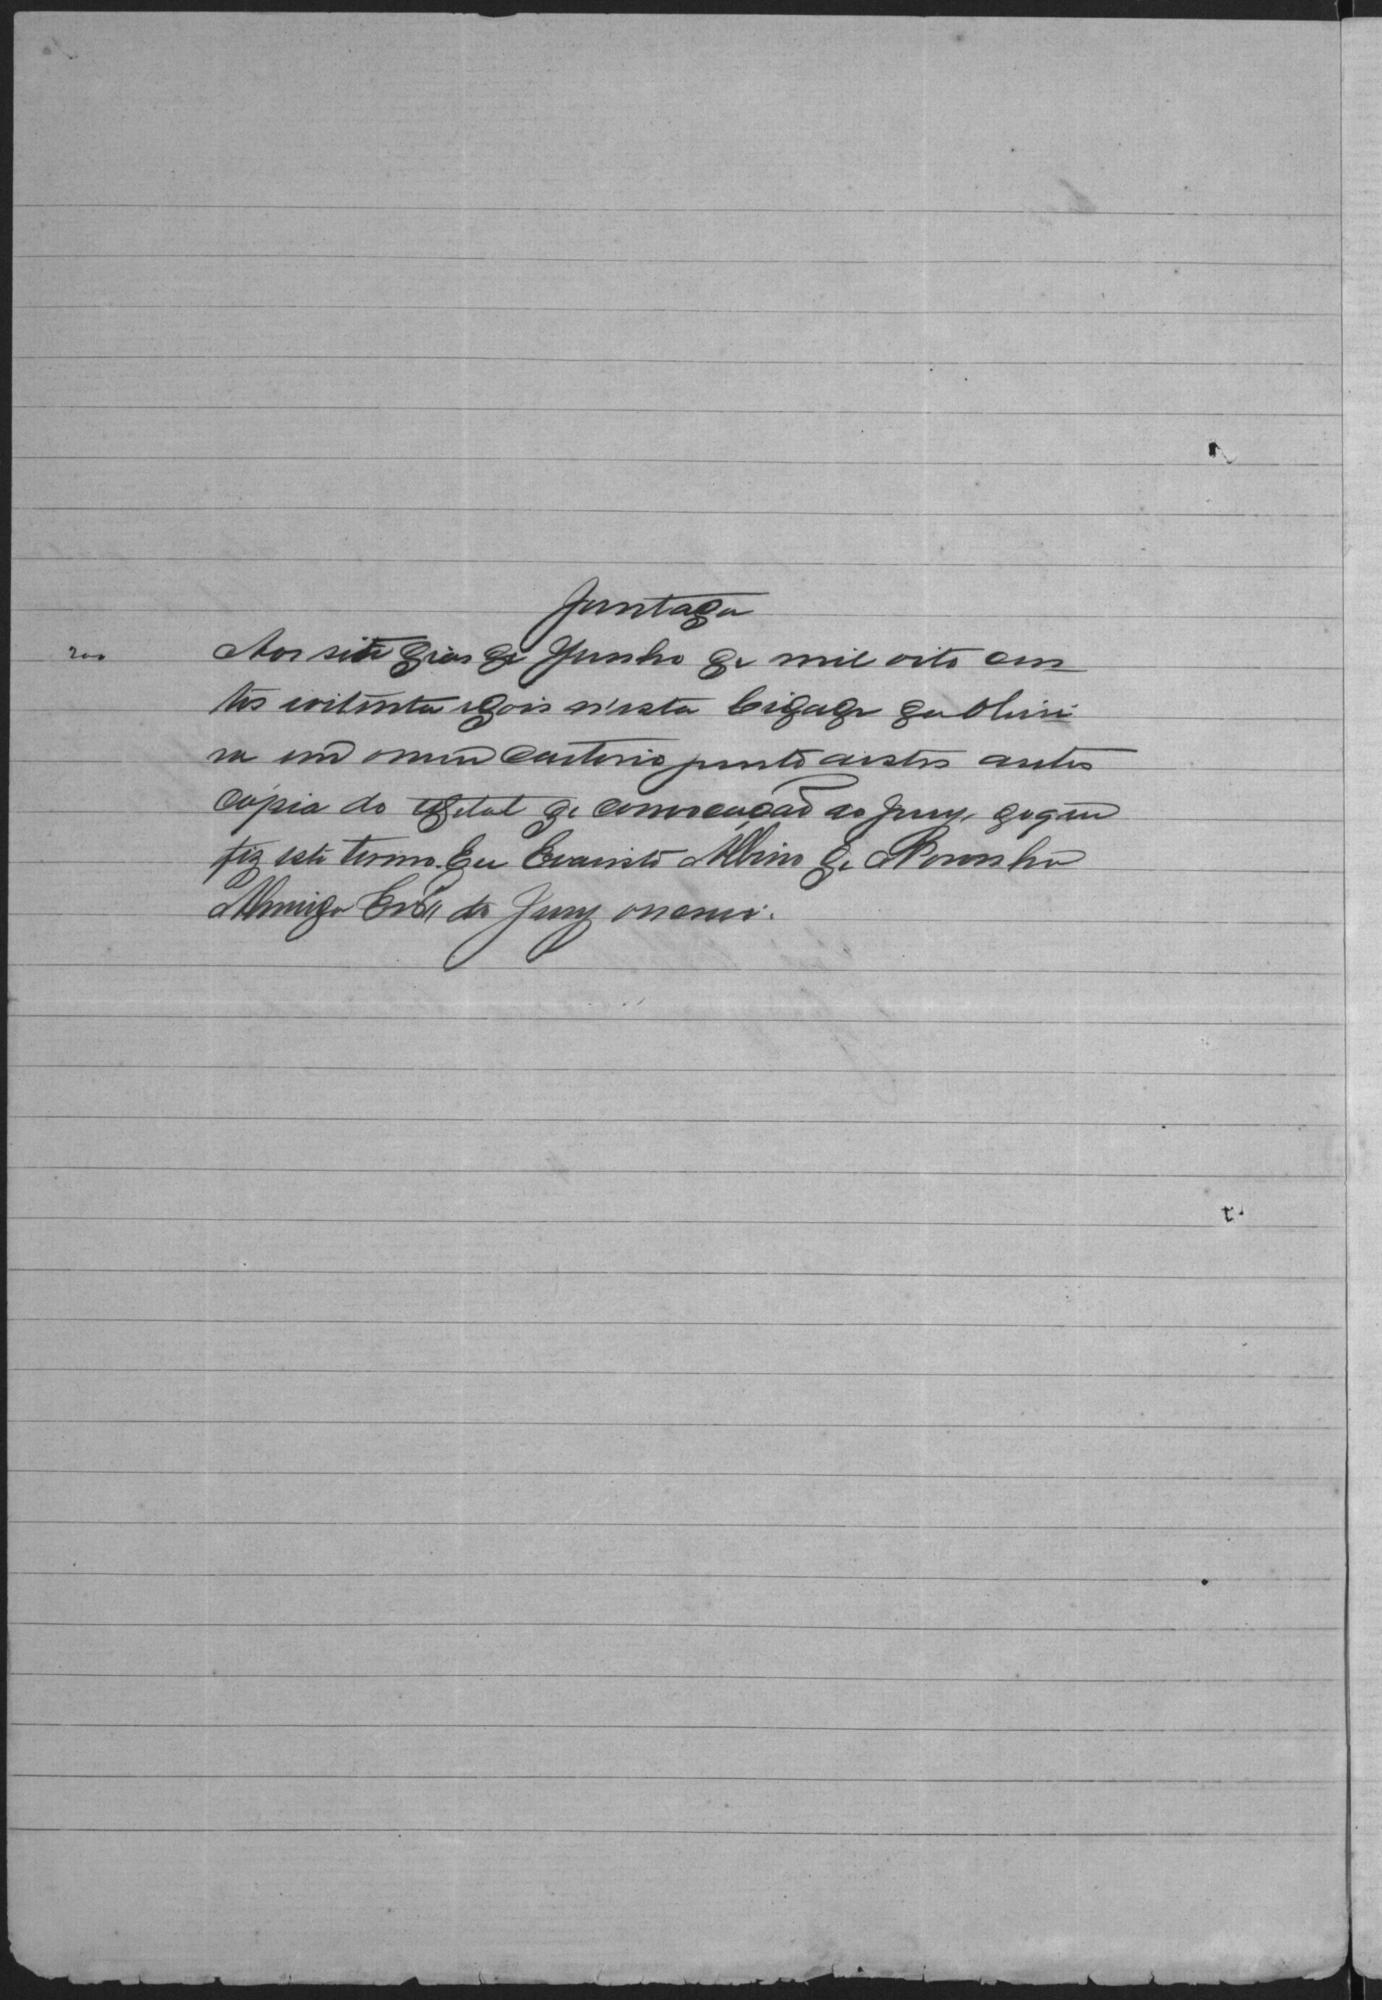 Juntada
200 Aos sete dias de Junho de mil oito cen
tos e oitenta e dois n'esta Cidade da Olivei
ra em o meu Cartorio junto a estes autos
copia do edital de convocação do Jury, do que
fiz este termo. Eu Evaristo Albino de Noronha
Almeida Escr. do Jury o escrevi.